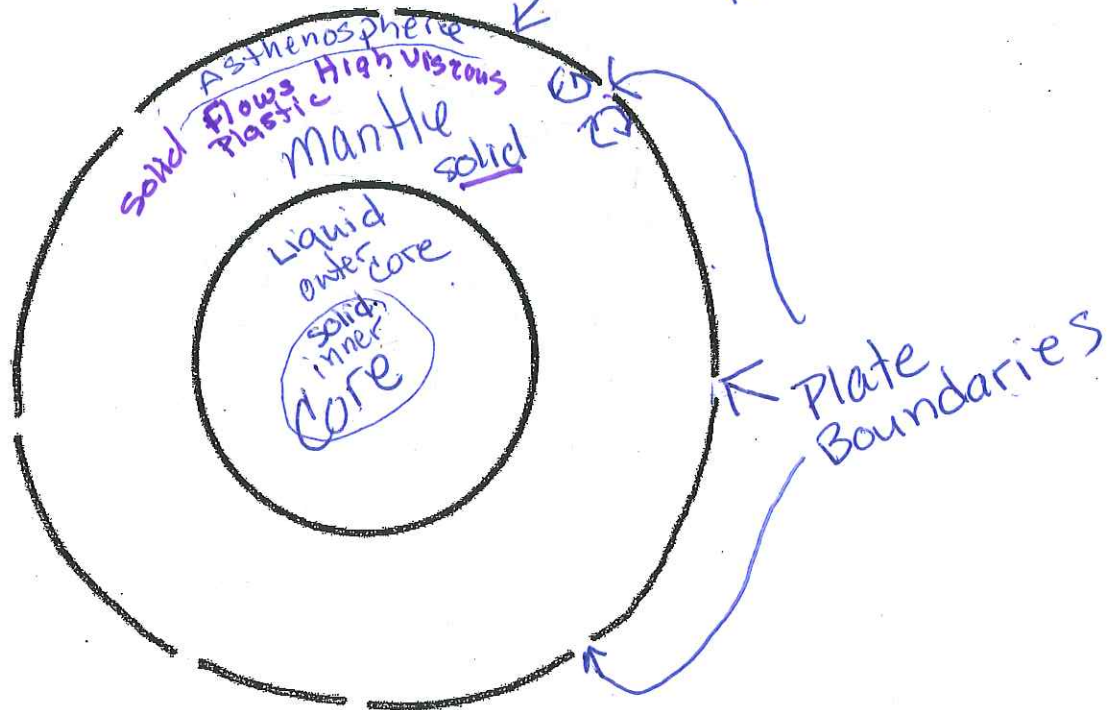 Asthenosphere
Flows High Viscous
solid Plastic
Mantle
solid
Liquid
outer core
solid
inner
Core
Plate
Boundaries